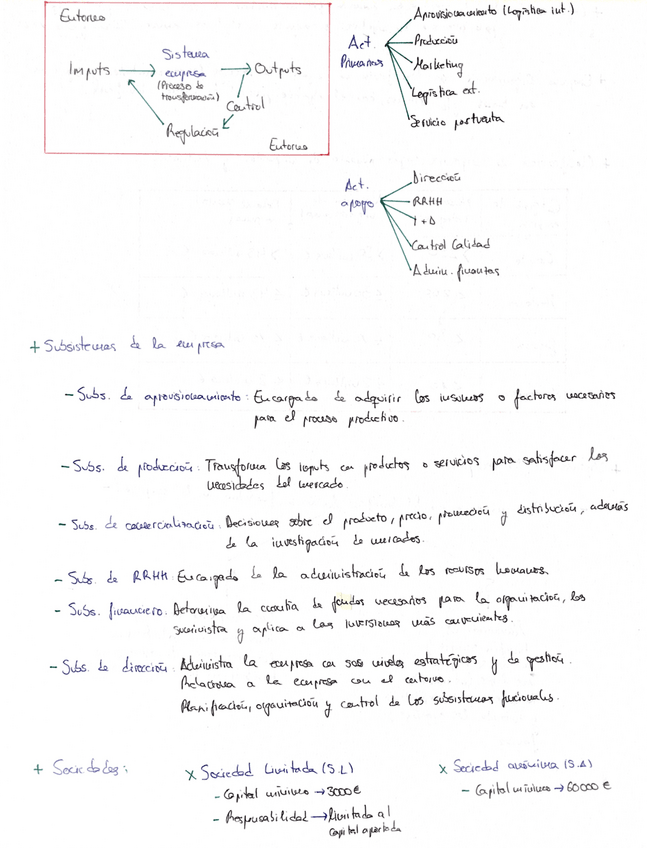 Entorno
Inputs → Sistema empresa (Proceso de transformación) → Outputs
Control
Regulación
Entorno
Act. Primarias
Aprovisionamiento (Logística int.)
Producción
Marketing
Logística ext.
Servicio postventa
Act. apoyo
Dirección
RRHH
I + D
Control Calidad
Admin. finanzas
+ Subsistemas de la empresa
- Subs. de aprovisionamiento: Encargado de adquirir los insumos o factores necesarios
para el proceso productivo.
- Subs. de producción: Transforma los inputs en productos o servicios para satisfacer las
necesidades del mercado.
- Subs. de comercialización: Decisiones sobre el producto, precio, promoción y distribución, además
de la investigación de mercados.
- Subs. de RRHH: Encargado de la administración de los recursos humanos.
- Subs. financiero: Determina la cuantía de fondos necesarios para la organización, los
suministra y aplica a las inversiones más convenientes.
- Subs. de dirección: Administra la empresa en sus niveles estratégicos y de gestión.
Relaciona a la empresa con el entorno.
Planificación, organización y control de los subsistemas funcionales.
+ Sociedades:
x Sociedad Limitada (S.L)
- Capital mínimo → 3000 €
- Responsabilidad → limitada al
capital aportado
x Sociedad anónima (S.A)
- Capital mínimo → 60000 €